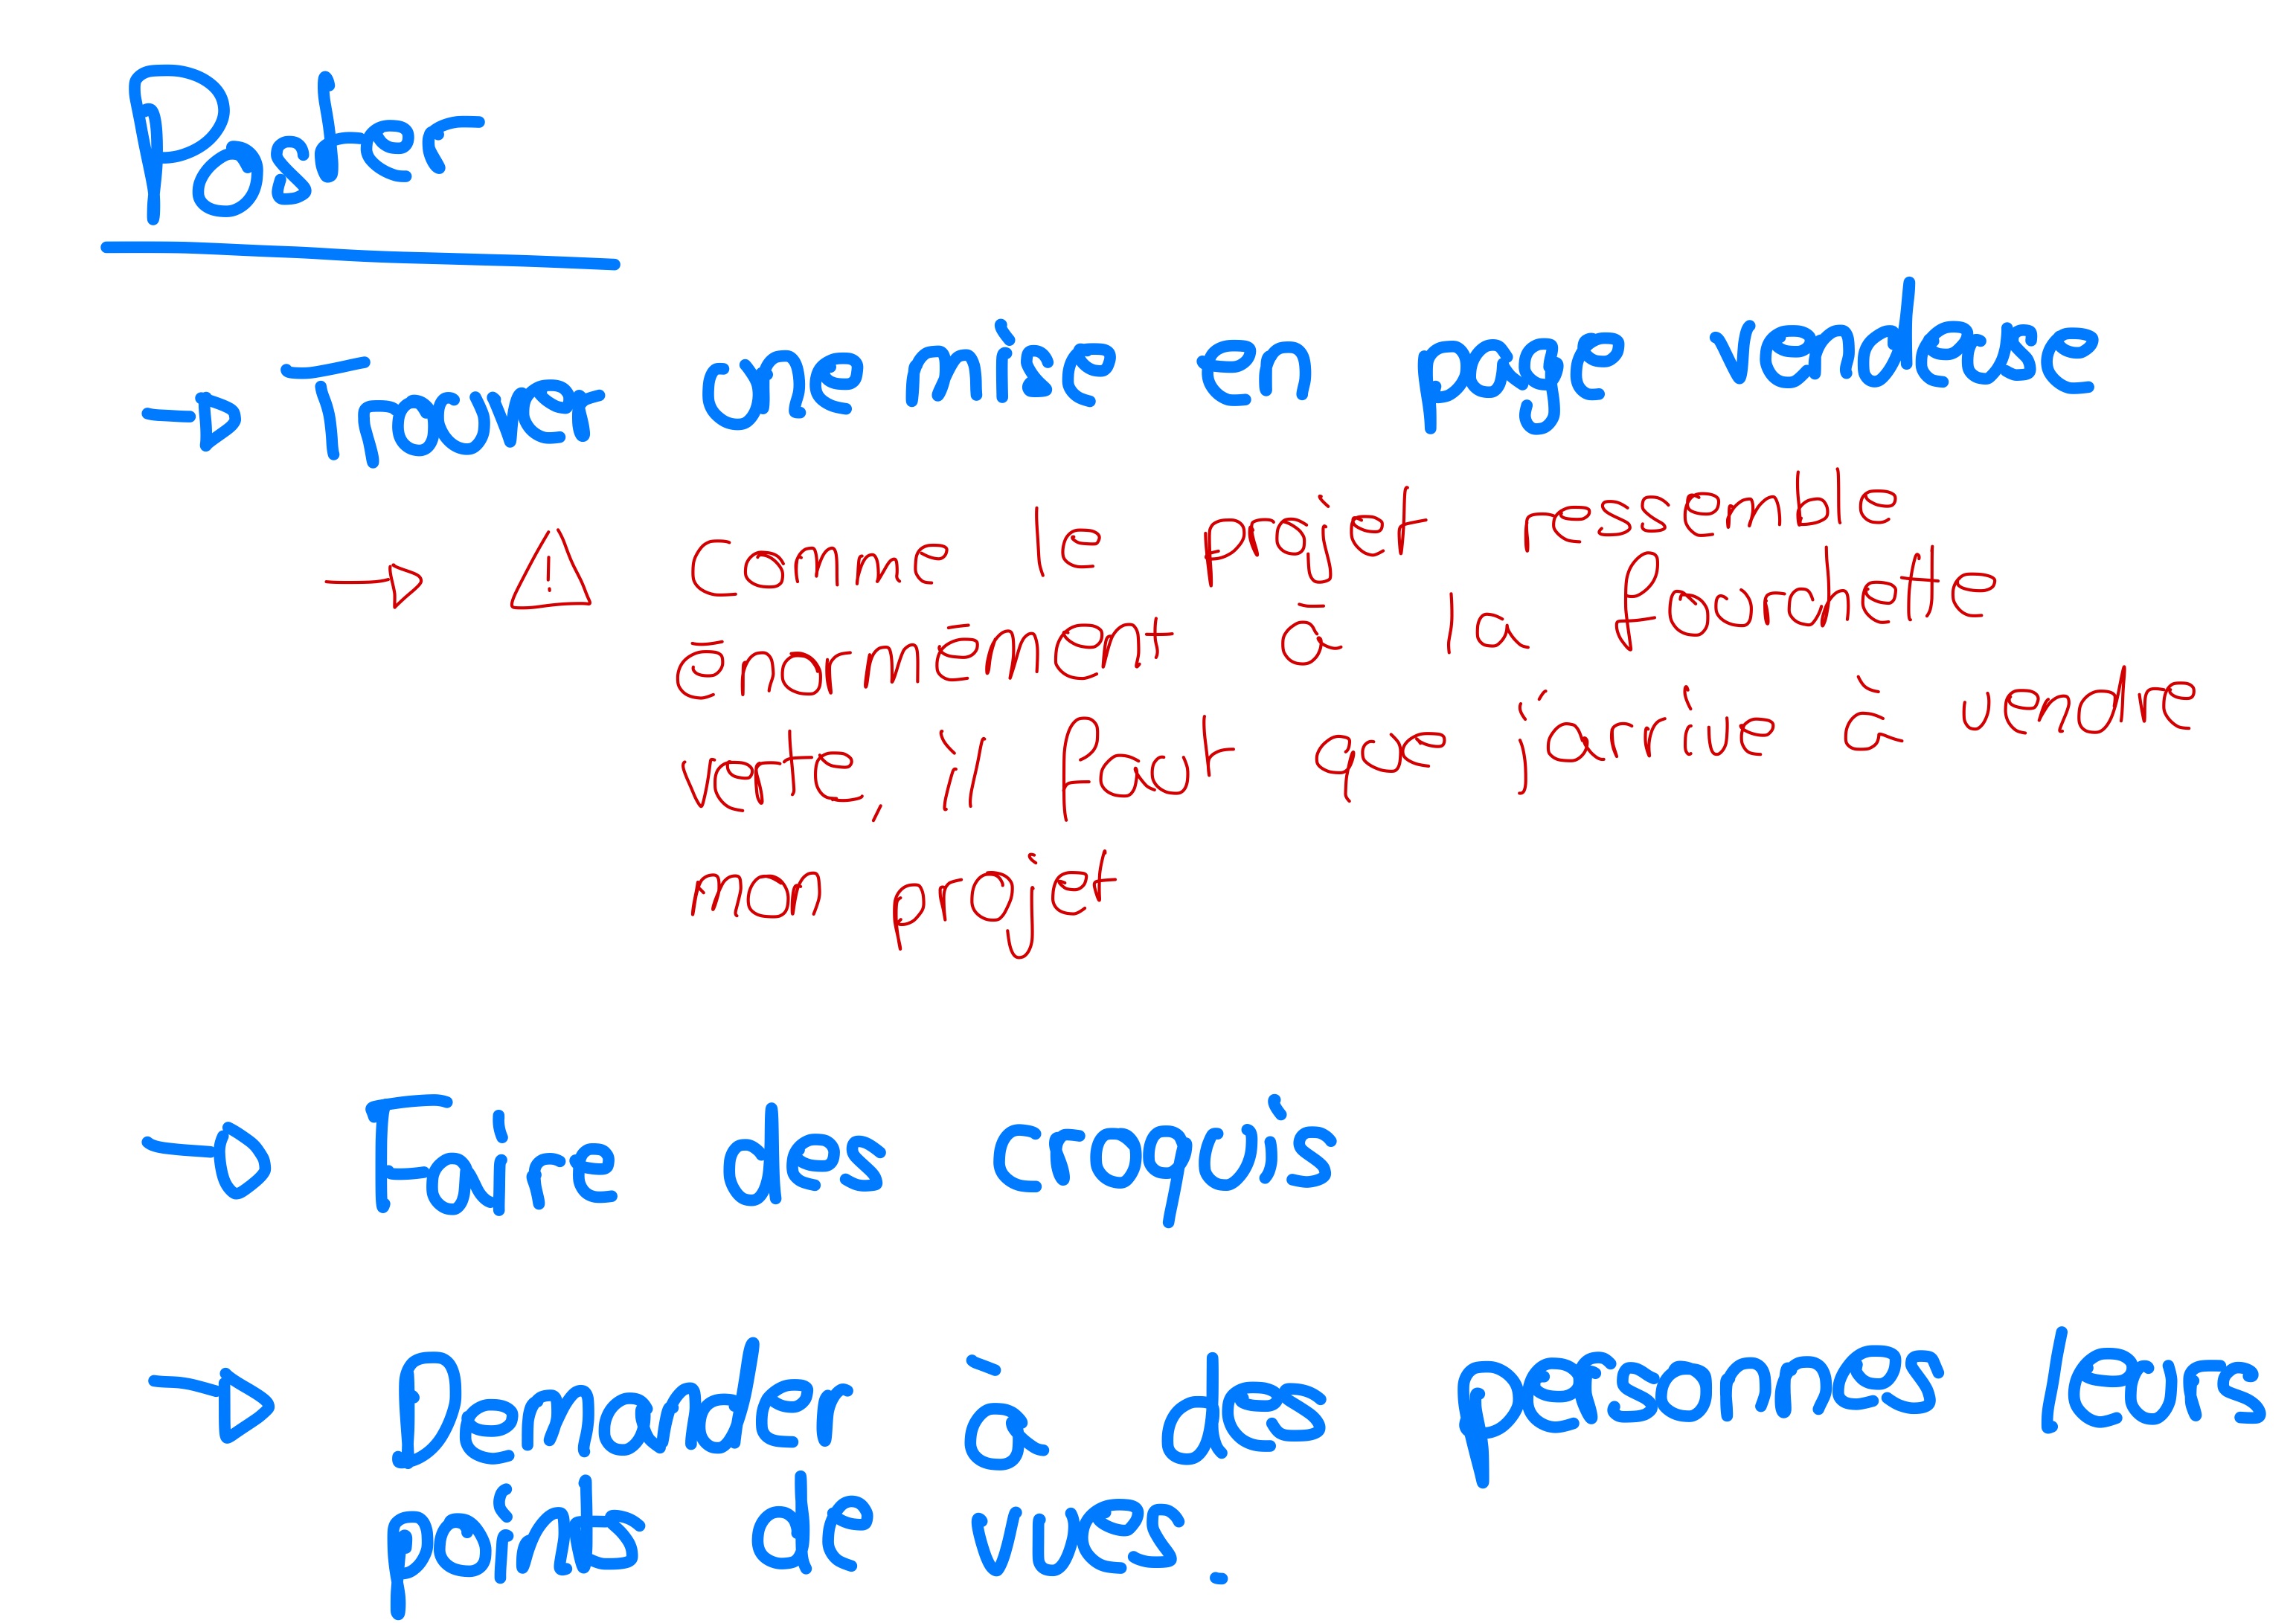 Poster
→ Trouver une mise en page vendeuse
→ ⚠ Comme le projet ressemble
énormément à la fourchette
verte, il faut que j'arrive à vendre
mon projet
→ Faire des croquis
→ Demander à des personnes leurs
points de vues.